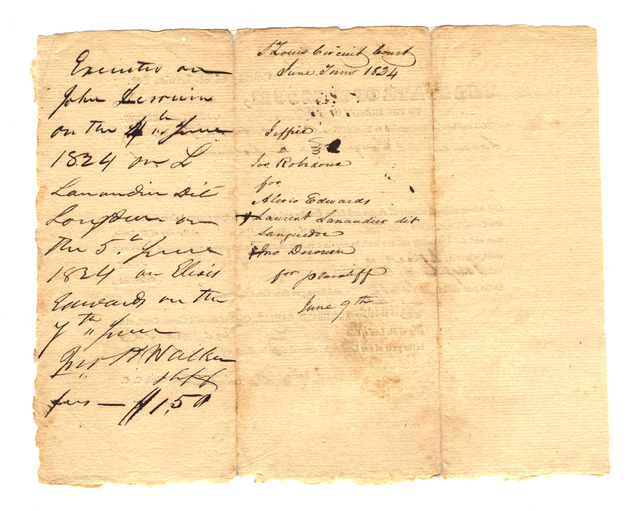 Executed on
John Derouin
on the 4th June
1824 on L
Lanaudier Dit
on
the 5th June
1824 on Elixis
Edwards on the
7th June
Jno K Walker
Shff
fees — $1,50
St Louis Circuit Court
June Term 1824
Jeffrie
3
Jos Robidoux
for
Alexis Edwards
Laurent Lanaudier dit
Languedoc
Jno Derouen
for plaintiff
June 9th